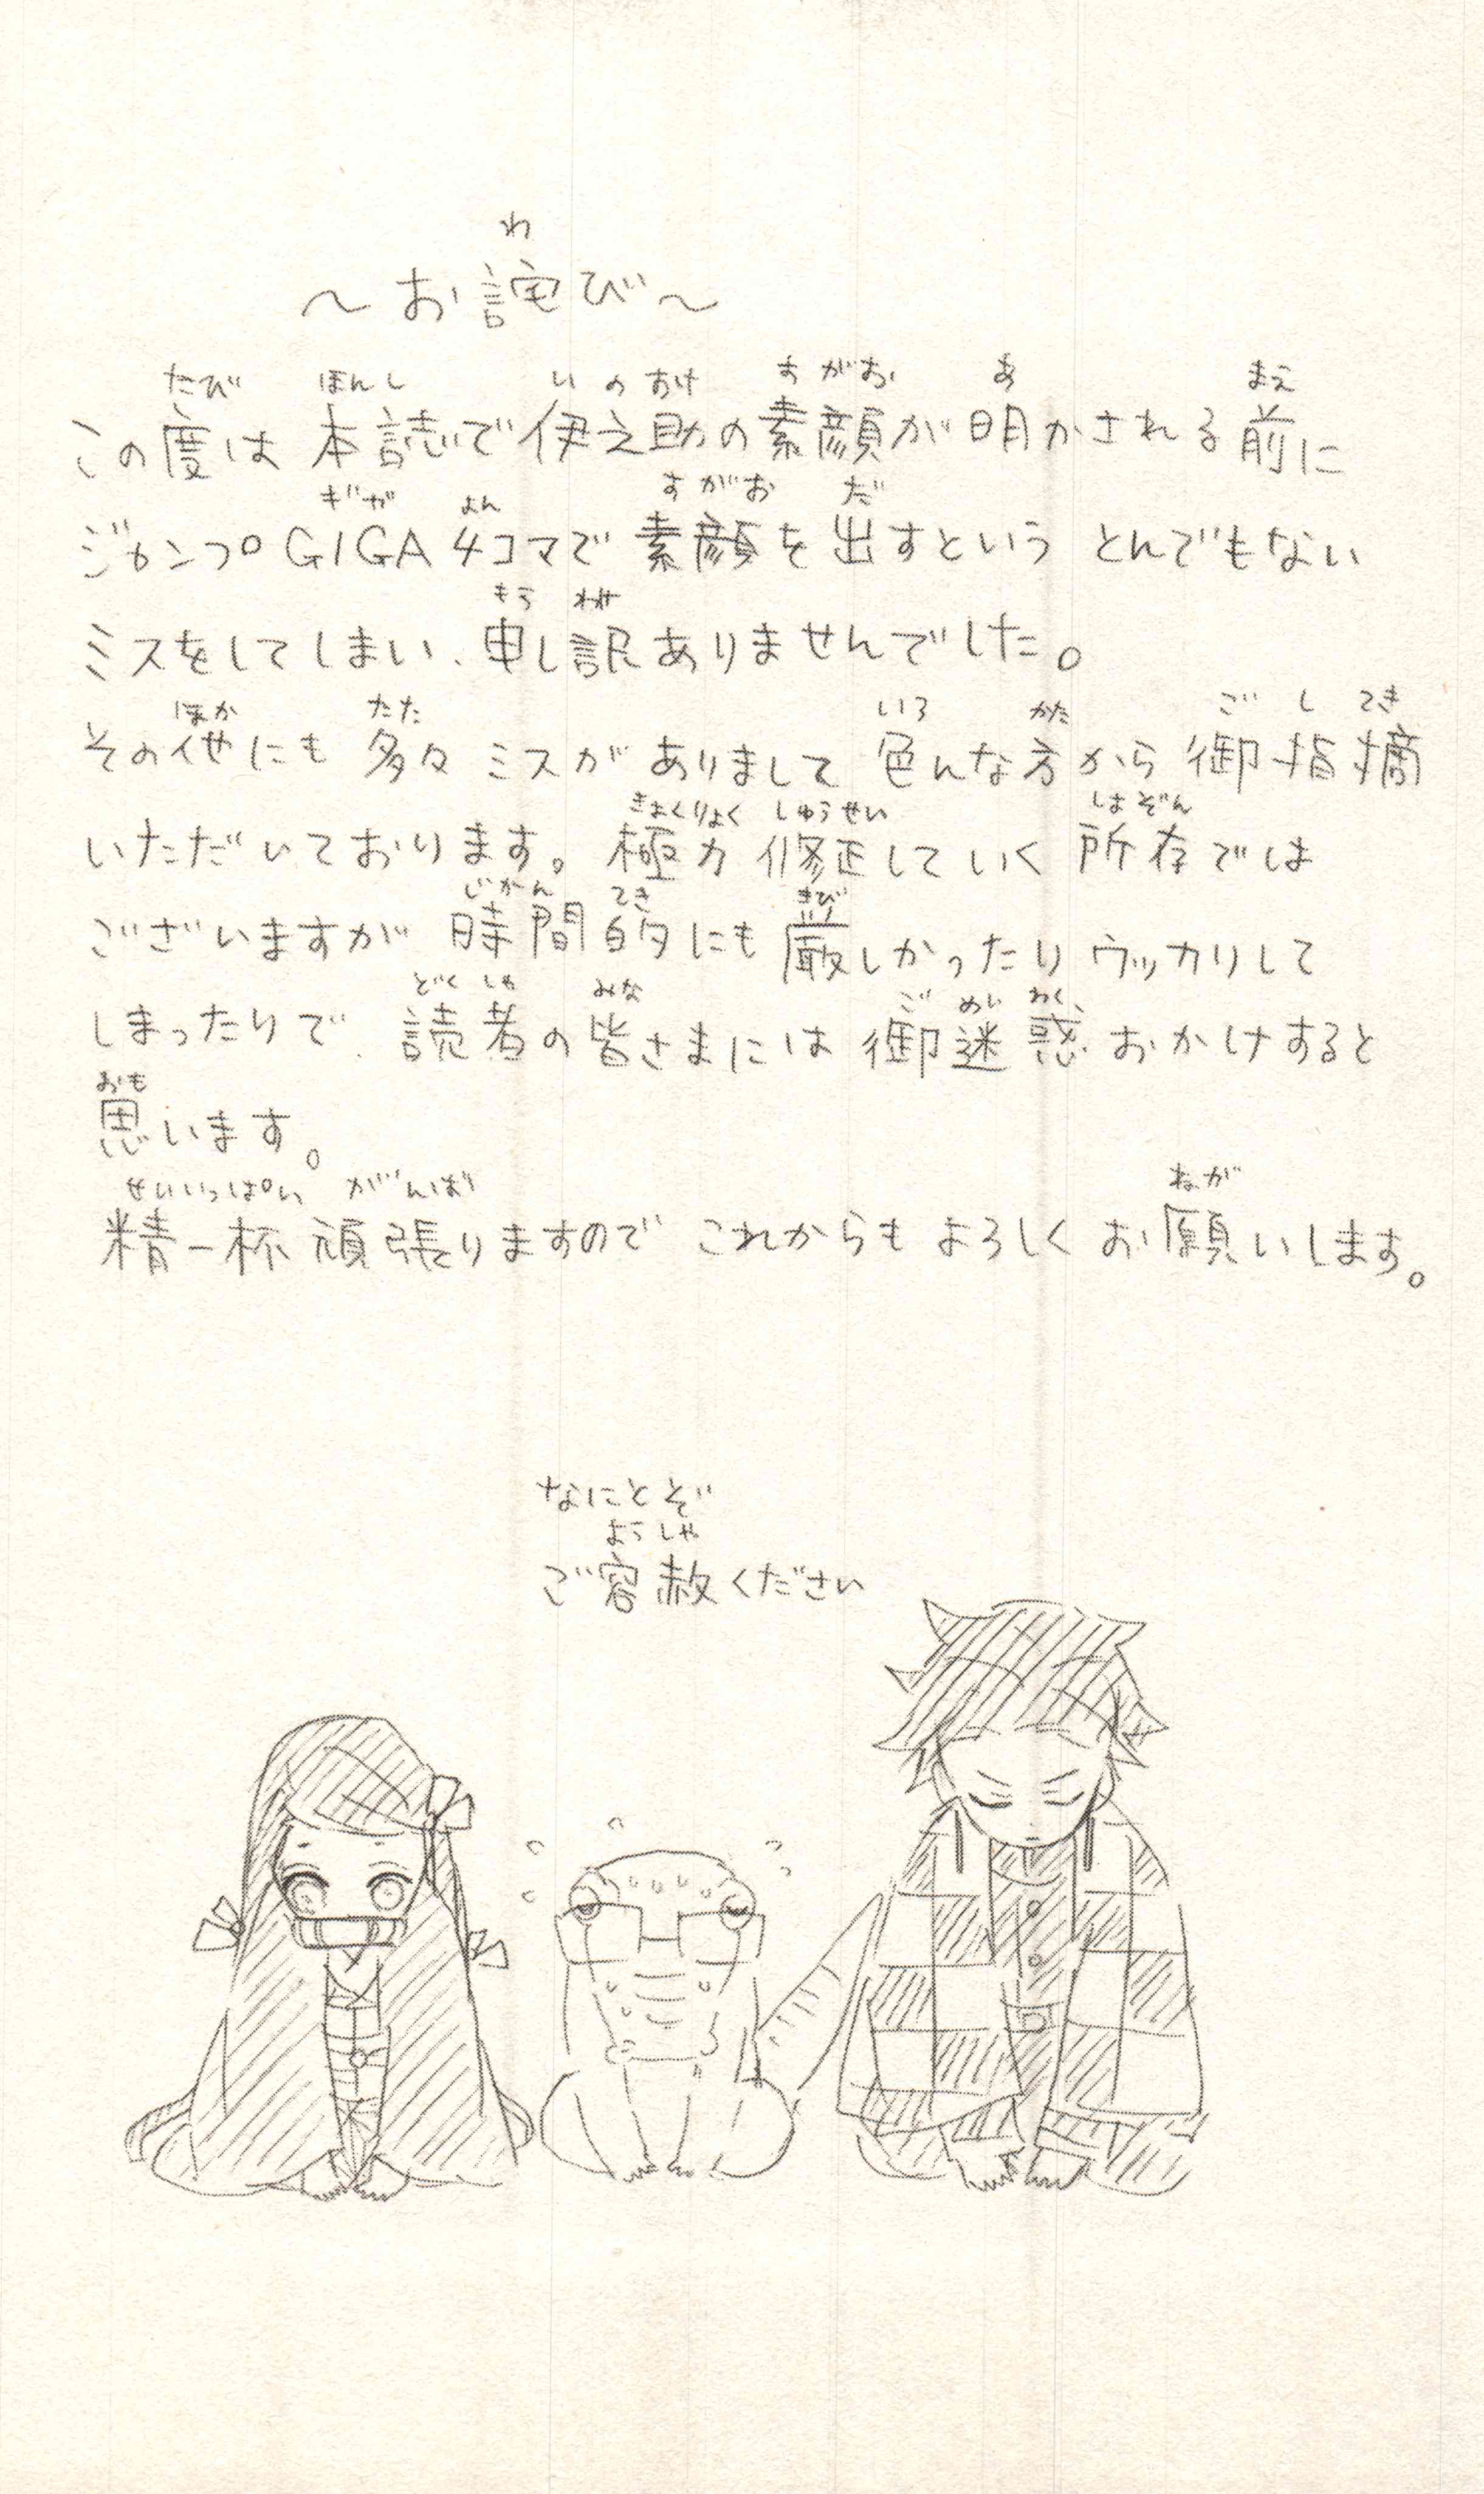 ～お詫び～
この度は本誌で伊之助の素顔が明かされる前に
ジャンプGIGA 4コマで素顔を出すというとんでもない
ミスをしてしまい、申し訳ありませんでした。
その他にも多々ミスがありまして色んな方から御指摘
いただいております。極力修正していく所存では
ございますが時間的にも厳しかったりウッカリして
しまったりで、読者の皆さまには御迷惑おかけすると
思います。
精一杯頑張りますのでこれからもよろしくお願いします。
なにとぞ
ご容赦ください